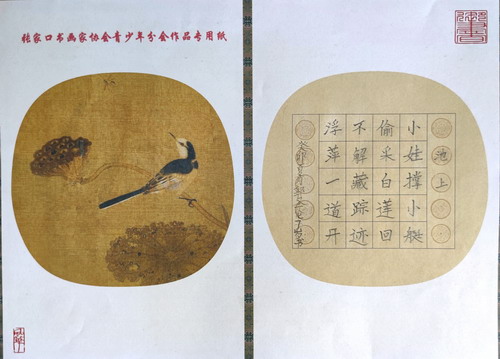 张家口书画家协会青少年分会作品专用纸
池上
小娃撑小艇
偷采白莲回
不解藏踪迹
浮萍一道开
癸卯